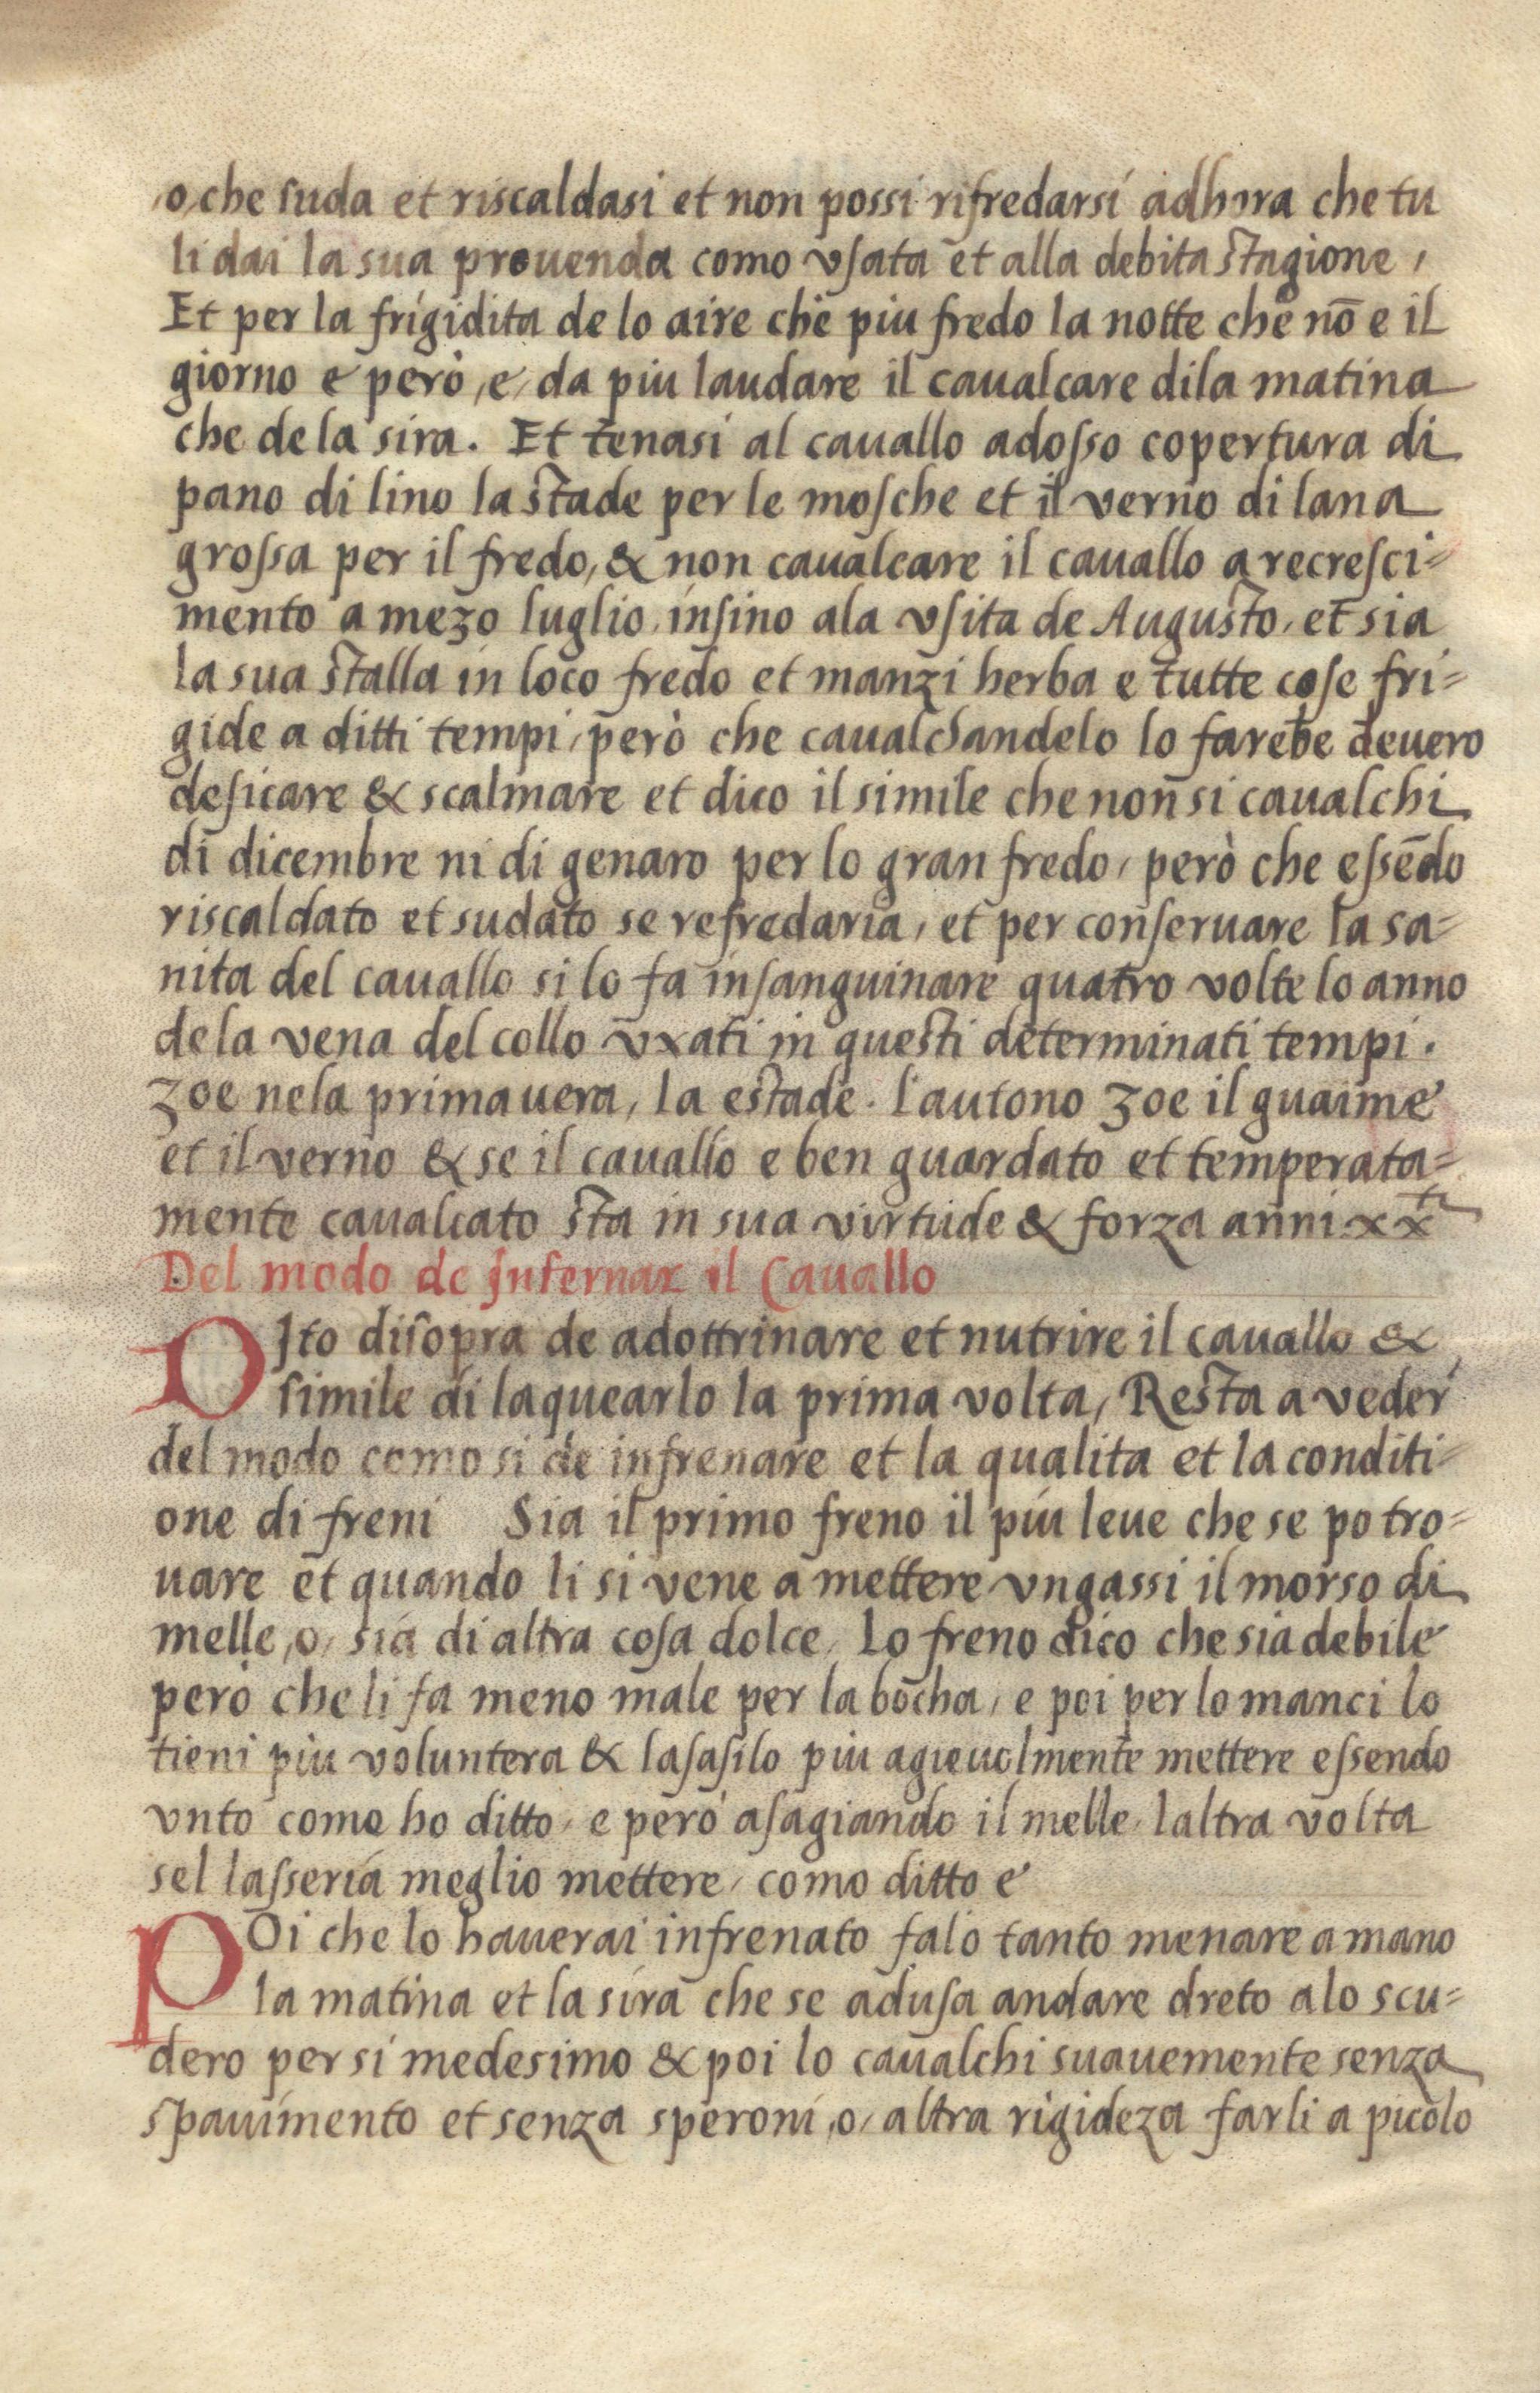 o, che suda et riscaldasi et non possi rifredarsi adhora che tu
li dai la sua prouenda como vsata et alla debita stagione,
Et per la frigidita de lo aire che piu fredo la notte che nō e il
giorno e però, e, da piu laudare il caualcare dila matina
che de la sira. Et tenasi al cauallo adosso copertura di
pano di lino la stade per le mosche et il verno di lana
grossa per il fredo, & non caualcare il cauallo a recresci=
mento a mezo luglio, insino ala vsita de Augusto, et sia
la sua stalla in loco fredo et manzi herba e tutte cose fri=
gide a ditti tempi, però che caualchandelo lo farebe deuero
desicare & scalmare et dico il simile che non si caualchi
di dicembre ni di genaro per lo gran fredo, però che essēdo
riscaldato et sudato se refredaria, et per conseruare la sa=
nita del cauallo si lo fa insanguinare quatro volte lo anno
de la vena del collo vxati in questi determinati tempi.
zoe nela primauera, la estade. l'autono zoe il guaime
et il verno & se il cauallo e ben guardato et temperata=
mente caualcato sta in sua virtude & forza anni xx
Del modo de Infernar il Cauallo
DIto disopra de adottrinare et nutrire il cauallo &
simile di laquearlo la prima volta, Resta a veder
del modo como si de infrenare et la qualita et la conditi=
one di freni Sia il primo freno il piu leue che se po tro=
uare et quando li si vene a mettere vngassi il morso di
melle, o, sia di altra cosa dolce, Lo freno dico che sia debile
però che li fa meno male per la bocha, e poi per lo manci lo
tieni piu voluntera & lasasilo piu agieuolmente mettere essendo
vnto como ho ditto, e però asagiando il melle, laltra volta
sel lasseria meglio mettere, como ditto e
POi che lo hauerai infrenato falo tanto menare a mano
la matina et la sira che se adusa andare dreto a lo scu=
dero per si medesimo & poi lo caualchi suauemente senza
spauimento et senza speroni, o, altra rigideza farli a picolo